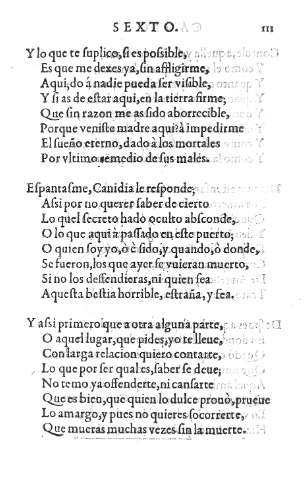 SEXTO. 111
Y lo que te suplico, si es possible,
Es que me dexes ya, sin affligirme,
Aqui, do à nadie pueda ser visible,
Y si as de estar aqui, en la tierra firme;
Que sin razon me as sido aborrecible,
Porque veniste madre aqui à impedirme
El sueño eterno, dado à los mortales
Por vltimo remedio de sus males.
Espantasme, Canidia le responde,
Assi por no querer saber de cierto
Lo quel secreto hado oculto absconde,
O lo que aqui à passado en este puerto;
O quien soy yo, ò è sido, y quando, ò donde,
Se fueron, los que ayer se vuieran muerto,
Si no los deffendieras, ni quien sea
Aquesta bestia horrible, estraña, y fea.
Y assi primero que a otra alguna parte,
O aquel lugar, que pides, yo te lleue,
Con larga relacion quiero contarte,
Lo que por ser qual es, saber se deue;
No temo ya offenderte, ni cansarte
Que es bien, que quien lo dulce prouò, prueue
Lo amargo, y pues no quieres socorrerte,
Que mueras muchas vezes sin la muerte.